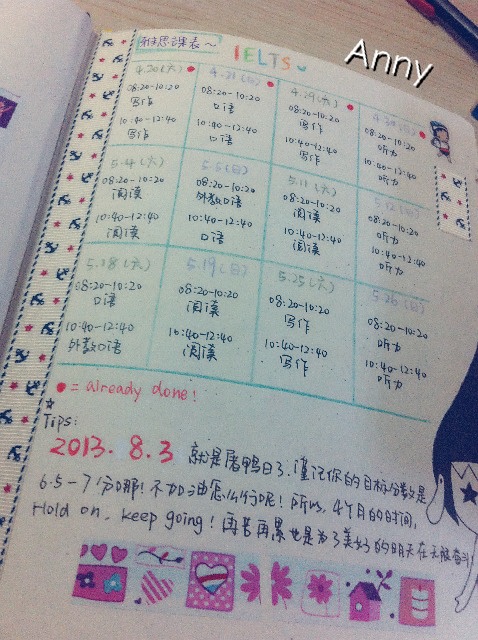 雅思课表～
IELTS
Anny
4.20(六) 4.21(日)
08:20-10:20 08:20-10:20 08:20-10:20 08:20-10:20
写作 口语 写作 听力
10:40-12:40 10:40-12:40 10:40-12:40 10:40-12:40
写作 口语 写作 听力
5.4(六) 5.5(日) 5.11(六)
08:20-10:20 08:20-10:20 08:20-10:20 08:20-10:20
阅读 外教口语 阅读 听力
10:40-12:40 10:40-12:40 10:40-12:40 10:40-12:40
阅读 口语 阅读 听力
5.18(六) 5.19(日) 5.25(六) 5.26(日)
08:20-10:20 08:20-10:20 08:20-10:20 08:20-10:20
口语 阅读 写作 听力
10:40-12:40 10:40-12:40 10:40-12:40 10:40-12:40
外教口语 阅读 写作 听力
= already done!
Tips:
2013.8.3 就是屠鸭日了.谨记你的目标分数是
6.5-7分哪!不加油怎么行呢!所以,4个月的时间,
Hold on, keep going!再苦再累也是为了美好的明天在